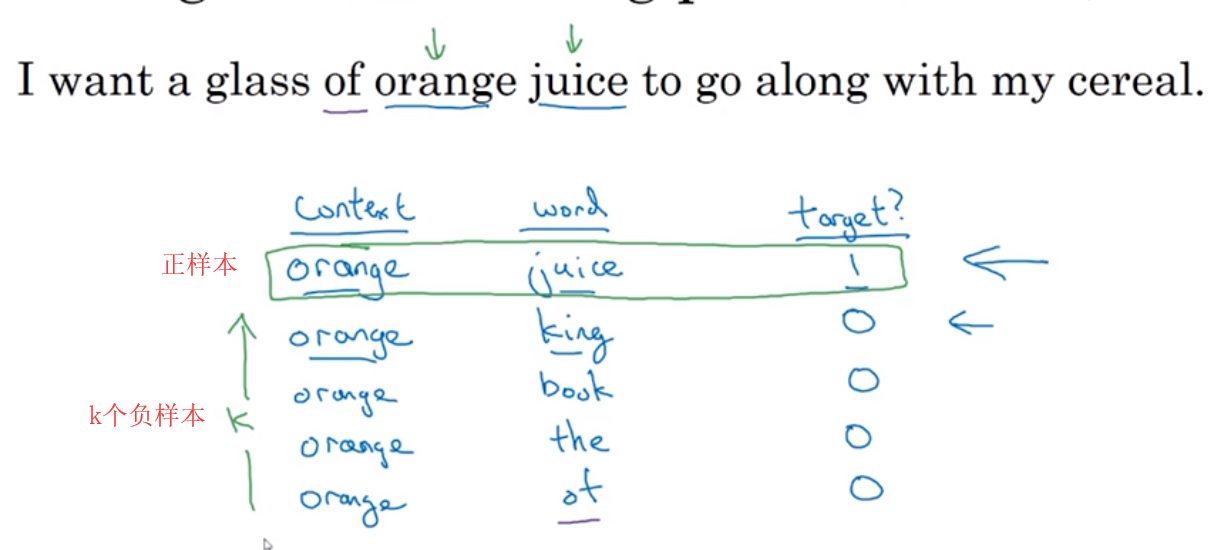 I want a glass of orange juice to go along with my cereal.
Context word target?
正样本 orange juice 1
orange king 0
orange book 0
k个负样本 K
orange the 0
orange of 0